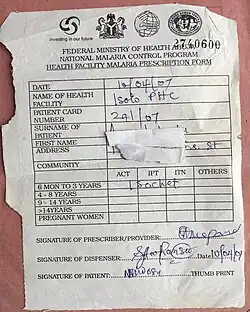 investing in our future
FEDERAL MINISTRY OF HEALTH
2740600
NATIONAL MALARIA CONTROL PROGRAM
HEALTH FACILITY MALARIA PRESCRIPTION FORM
DATE 10/04/07
NAME OF HEALTH FACILITY Isolo PHC
PATIENT CARD NUMBER 241/07
SURNAME OF PATIENT
FIRST NAME
ADDRESS St
COMMUNITY
ACT IPT ITN OTHERS
6 MON TO 3 YEARS 1 Sachet
4 - 8 YEARS
9 - 14 YEARS
>14YEARS
PREGNANT WOMEN
SIGNATURE OF PRESCRIBER/PROVIDER:
SIGNATURE OF DISPENSER: Date 10/04/07
SIGNATURE OF PATIENT: THUMB PRINT